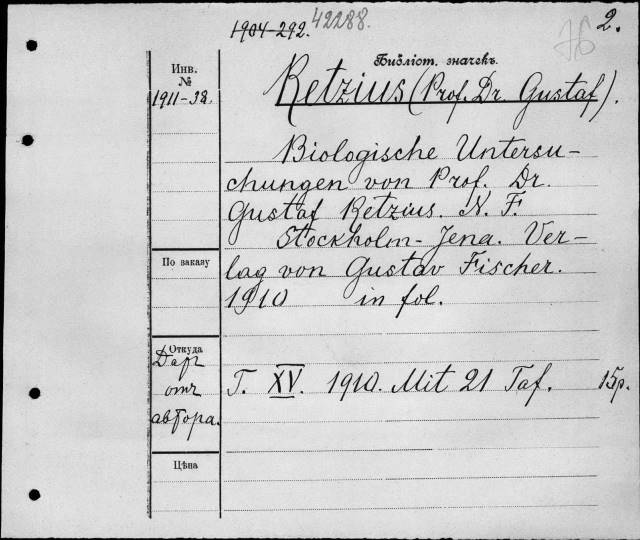 1904-292. 42288. 2.
Библіот. значекъ.
Инв.
№
1911-38.
Retzius (Prof. Dr. Gustaf).
Biologische Untersu-
chungen von Prof. Dr.
Gustaf Retzius. N. F.
Stockholm-Jena. Ver-
По заказу
lag von Gustav Fischer.
1910 in fol.
Откуда
Даръ
отъ
автора.
T. XV. 1910. Mit 21 Taf. 15р.
Цѣна